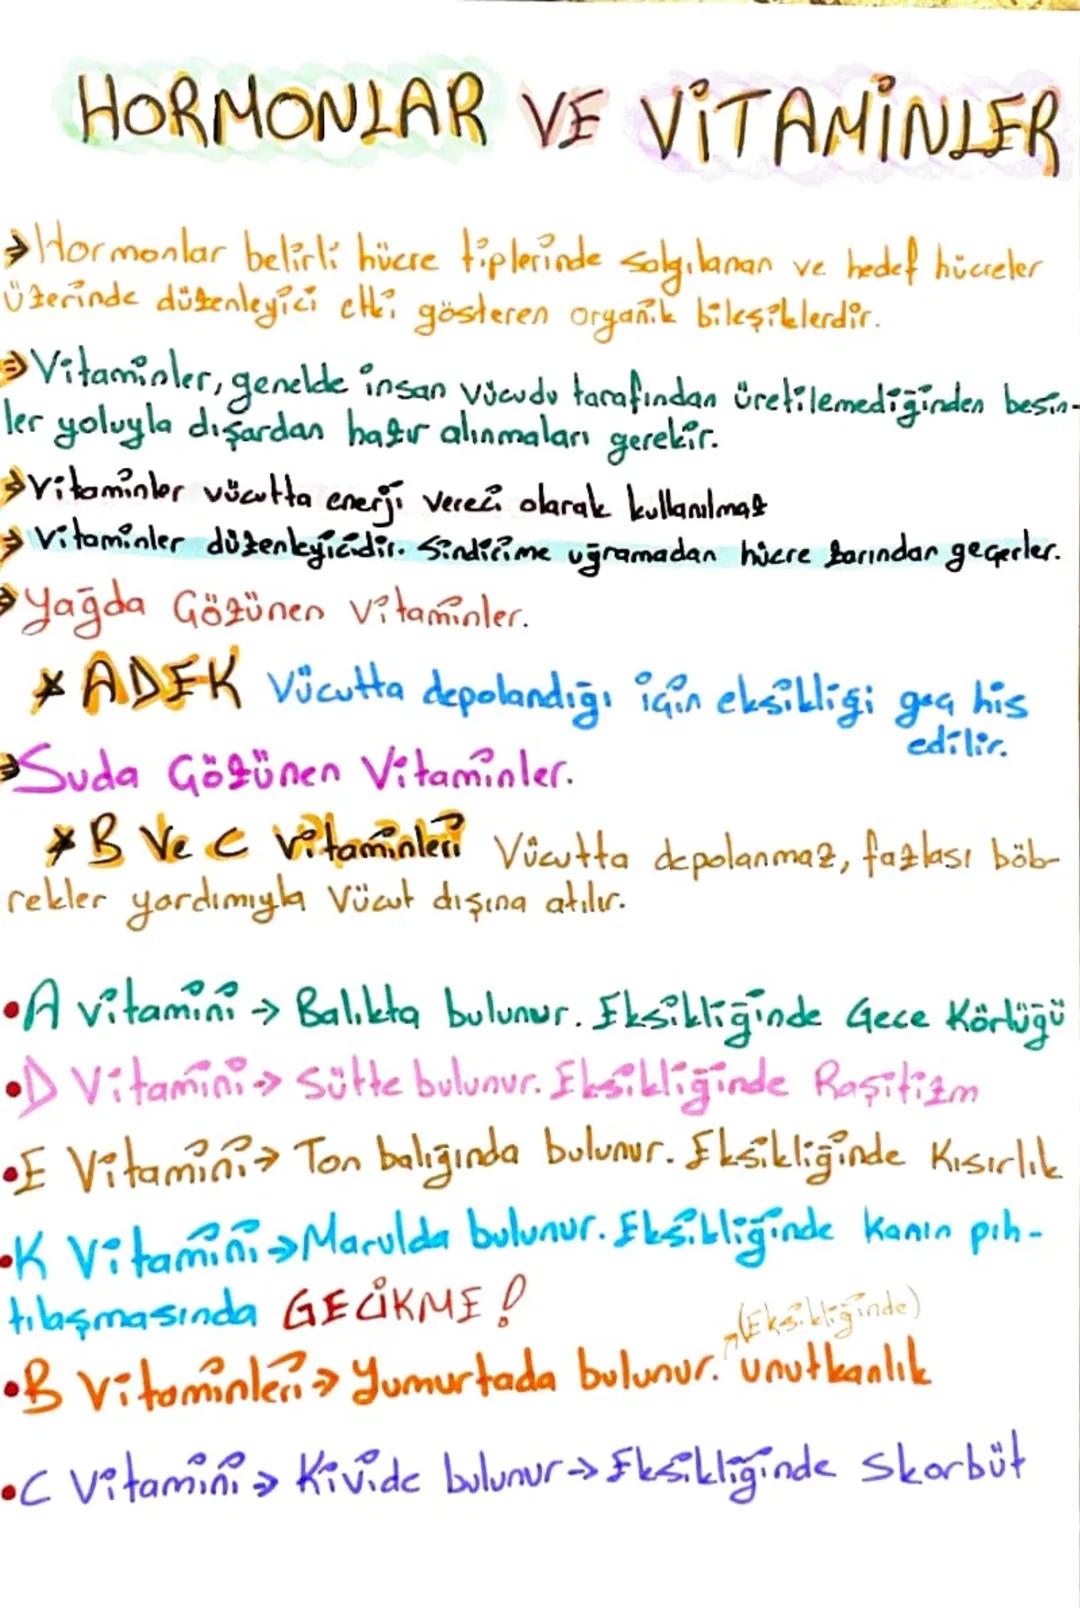 HORMONLAR VE VİTAMİNLER
→Hormonlar belirli hücre tiplerinde salgılanan ve hedef hücreler
üzerinde düzenleyici etki gösteren organik bileşiklerdir.
→Vitaminler, genelde insan vücudu tarafından üretilemediğinden besin-
ler yoluyla dışardan hazır alınmaları gerekir.
→Vitaminler vücutta enerji verici olarak kullanılmaz
→Vitaminler düzenleyicidir. Sindirime uğramadan hücre zarından geçerler.
→Yağda Çözünen Vitaminler.
* ADEK Vücutta depolandığı için eksikliği geç his
edilir.
→Suda Çözünen Vitaminler.
* B Ve C Vitaminleri Vücutta depolanmaz, fazlası böb-
rekler yardımıyla Vücut dışına atılır.
•A vitamini → Balıkta bulunur. Eksikliğinde Gece Körlüğü
•D Vitamini → Sütte bulunur. Eksikliğinde Raşitizm
•E Vitamini → Ton balığında bulunur. Eksikliğinde Kısırlık
•K Vitamini → Marulda bulunur. Eksikliğinde kanın pıh-
tılaşmasında GECİKME!
(Eksikliğinde)
•B Vitaminleri → Yumurtada bulunur. unutkanlık
•C Vitamini → Kivide bulunur → Eksikliğinde Skorbüt